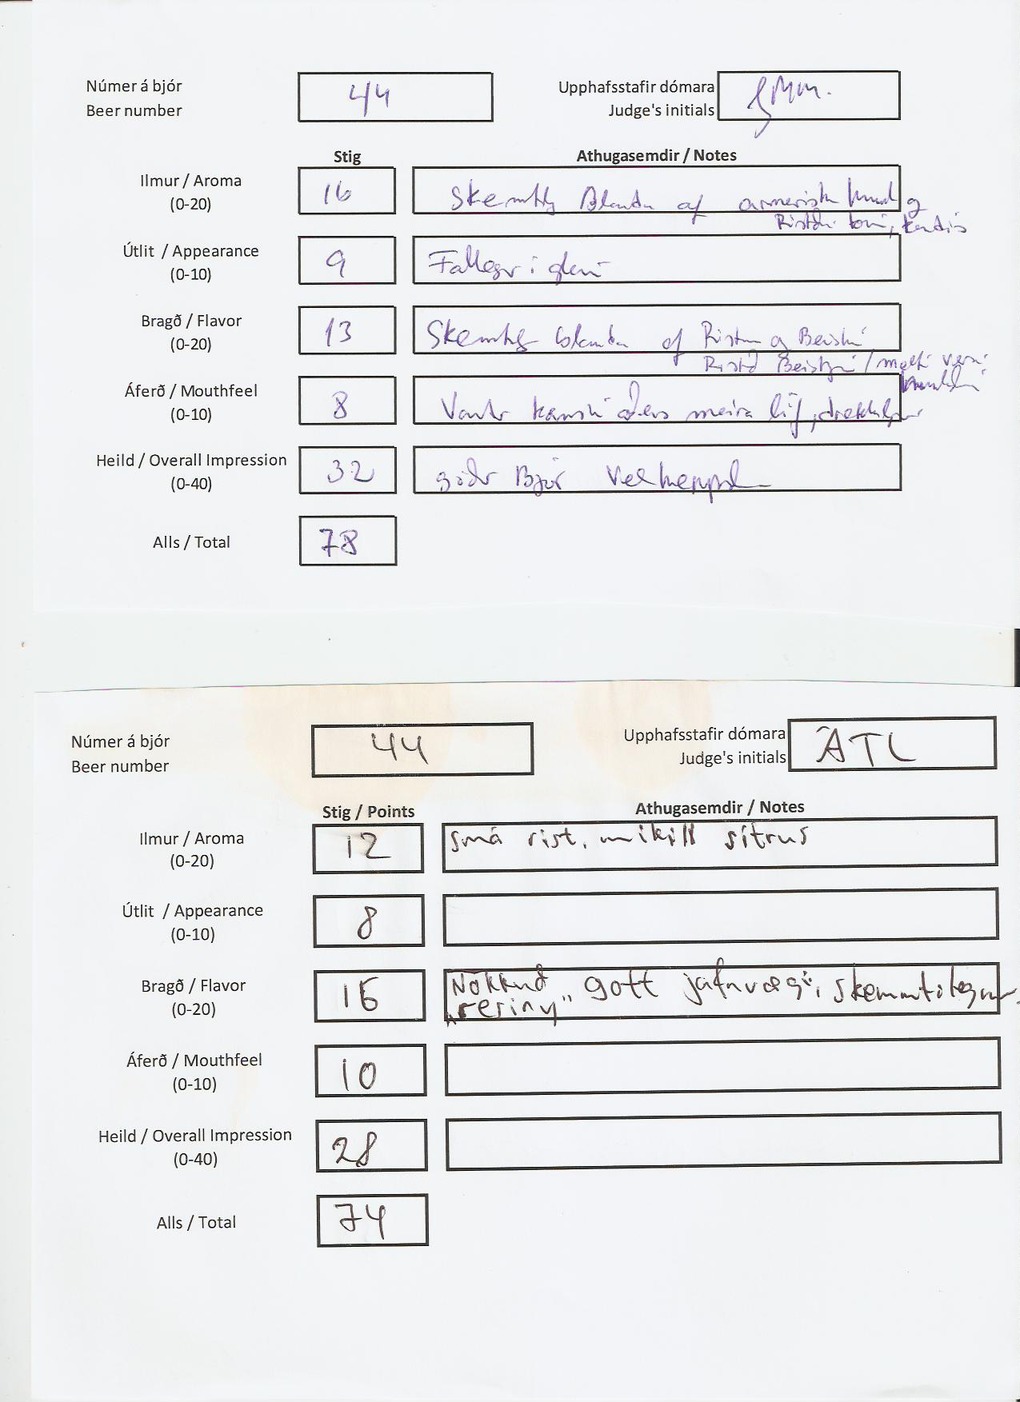 Númer á bjór
Beer number
44
Upphafsstafir dómara
Judge's initials
Stig
Athugasemdir / Notes
Ilmur / Aroma
(0-20)
16
Skemtileg Blanda af og
Útlit / Appearance
(0-10)
9
Fallegur í glasi
Bragð / Flavor
(0-20)
13
Skemtileg blanda af
Áferð / Mouthfeel
(0-10)
8
Vantar kanski aðeins meira líf,
Heild / Overall Impression
(0-40)
32
góðr Bjór Velheppnað
Alls / Total
78
Númer á bjór
Beer number
44
Upphafsstafir dómara
Judge's initials
ÁTL
Stig / Points
Athugasemdir / Notes
Ilmur / Aroma
(0-20)
12
Smá rist, mikill sítrus
Útlit / Appearance
(0-10)
8
Bragð / Flavor
(0-20)
16
Nokkuð gott jafnvægi, skemmtilegur.
„resiny"
Áferð / Mouthfeel
(0-10)
10
Heild / Overall Impression
(0-40)
28
Alls / Total
74